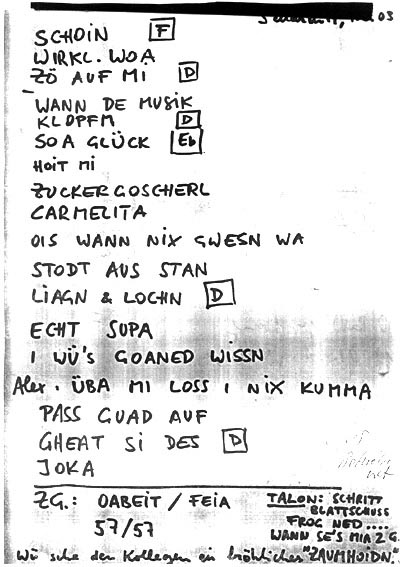 03
SCHOIN F
WIRKL. WOA
ZÖ AUF MI D
WANN DE MUSIK
KLOPFM D
SO A GLÜCK Eb
HOIT MI
ZUCKERGOSCHERL
CARMELITA
OIS WANN NIX GWESN WA
STODT AUS STAN
LIAGN & LOCHN D
ECHT SUPA
I WÜ'S GOANED WISSN
Alex. ÜBA MI LOSS I NIX KUMMA
PASS GUAD AUF
GHEAT SI DES D
JOKA
ZG.: OABEIT / FEIA
57/57
TALON: SCHRITT
BLATTSCHUSS
FROG NED ....
WANN SE'S MIA ZG.
den Kollegen ein fröhliches "ZAUMHOIDN."